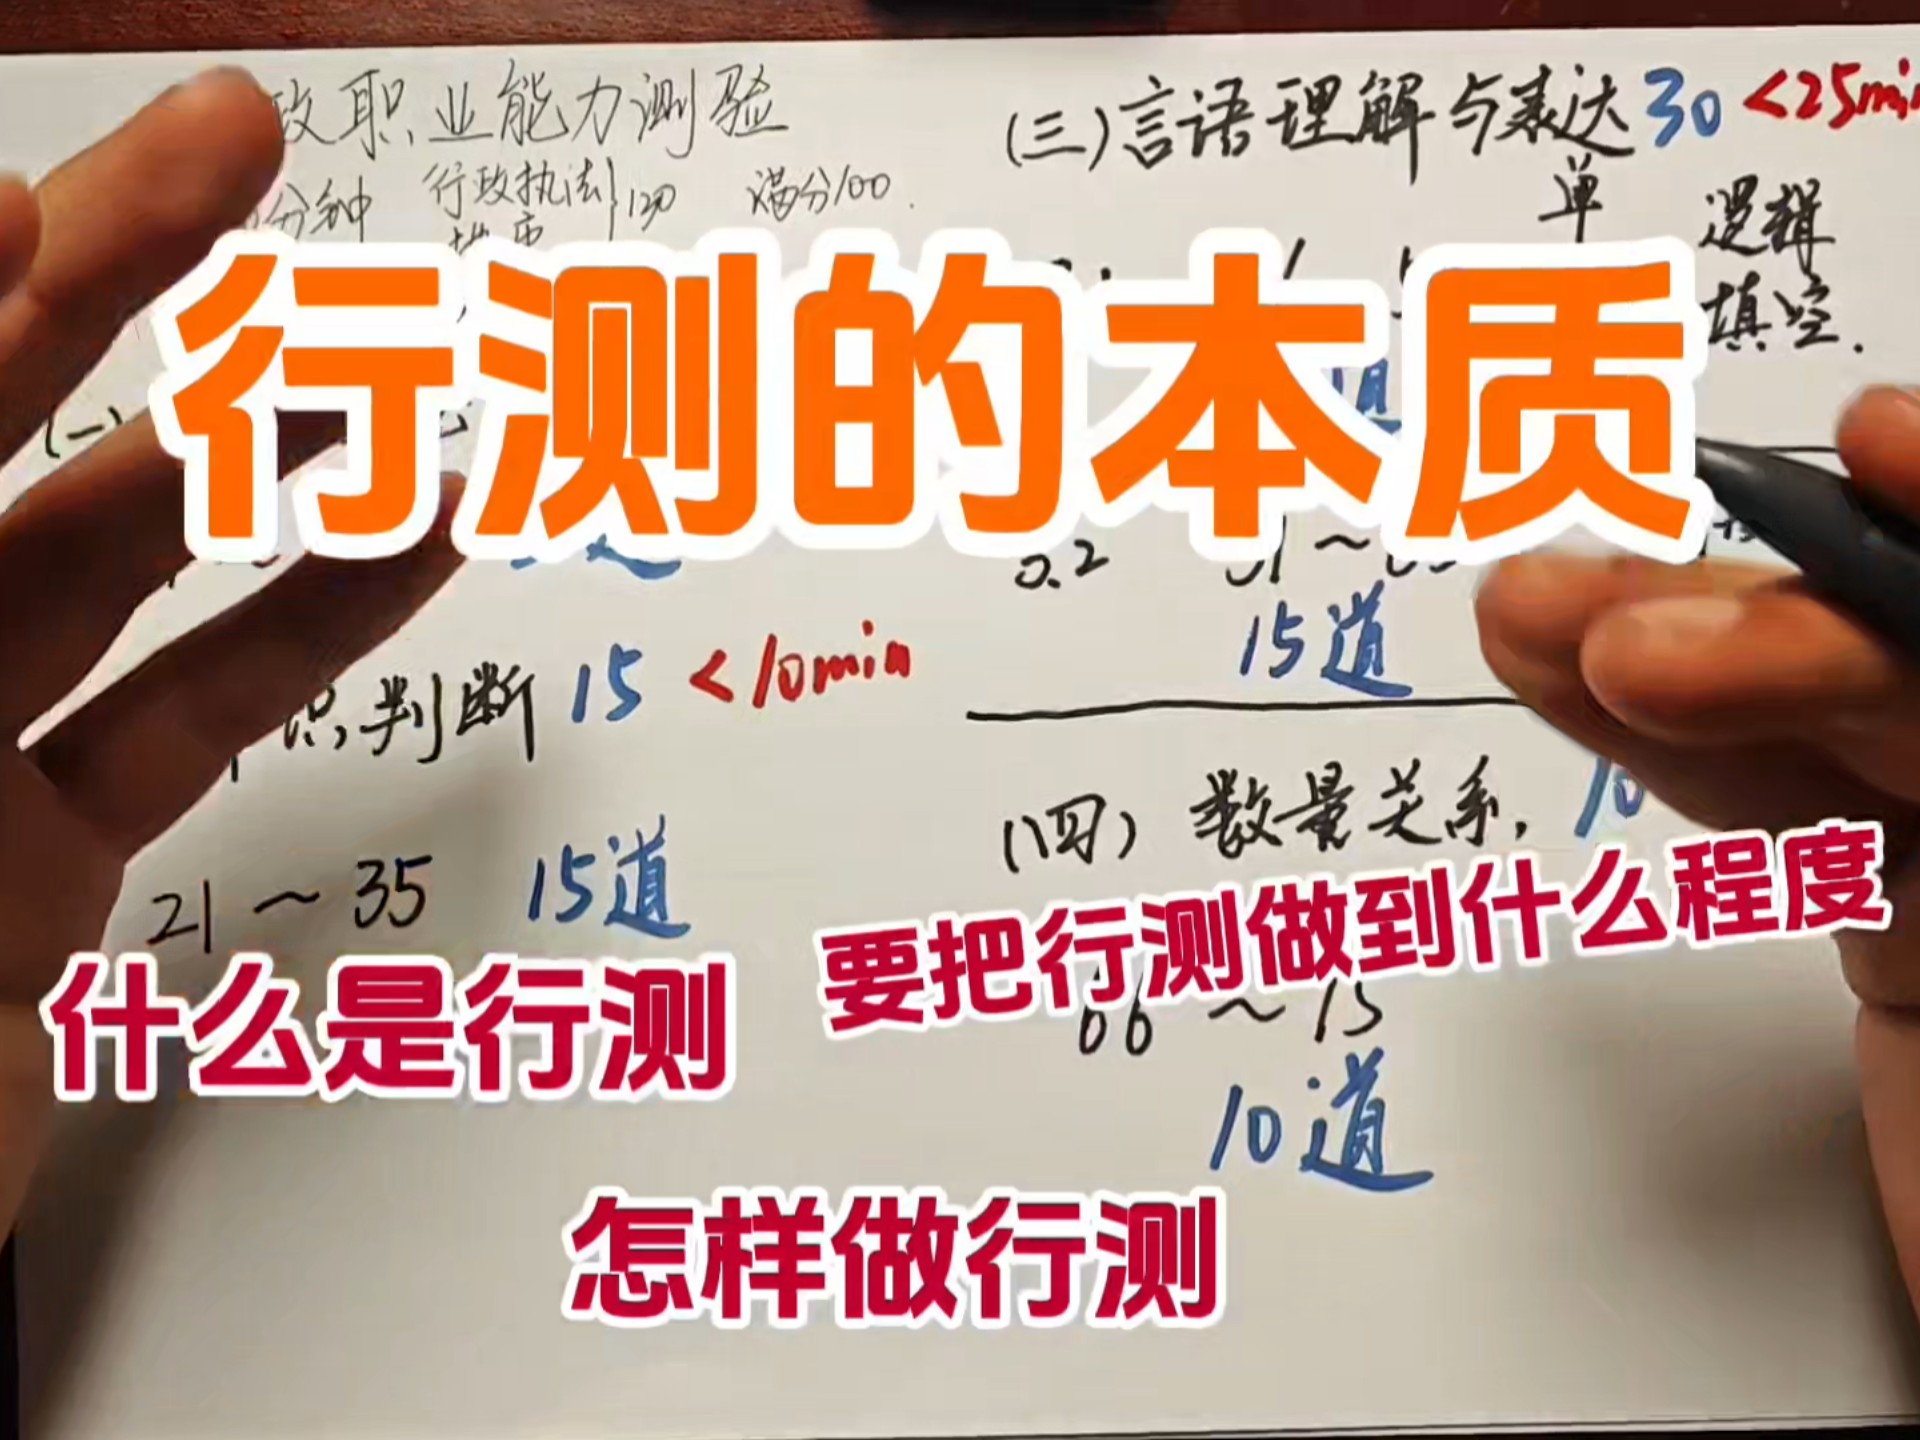 政职业能力测验
分钟 行政执法 120 满分100.
(三)言语理解与表达 30 <25min
单 逻辑
填空.
行测的本质
(一)
0.2
15道
识判断 15 <10min
(四) 数量关系, 10
21~35 15道
要把行测做到什么程度
什么是行测
66~15
10道
怎样做行测